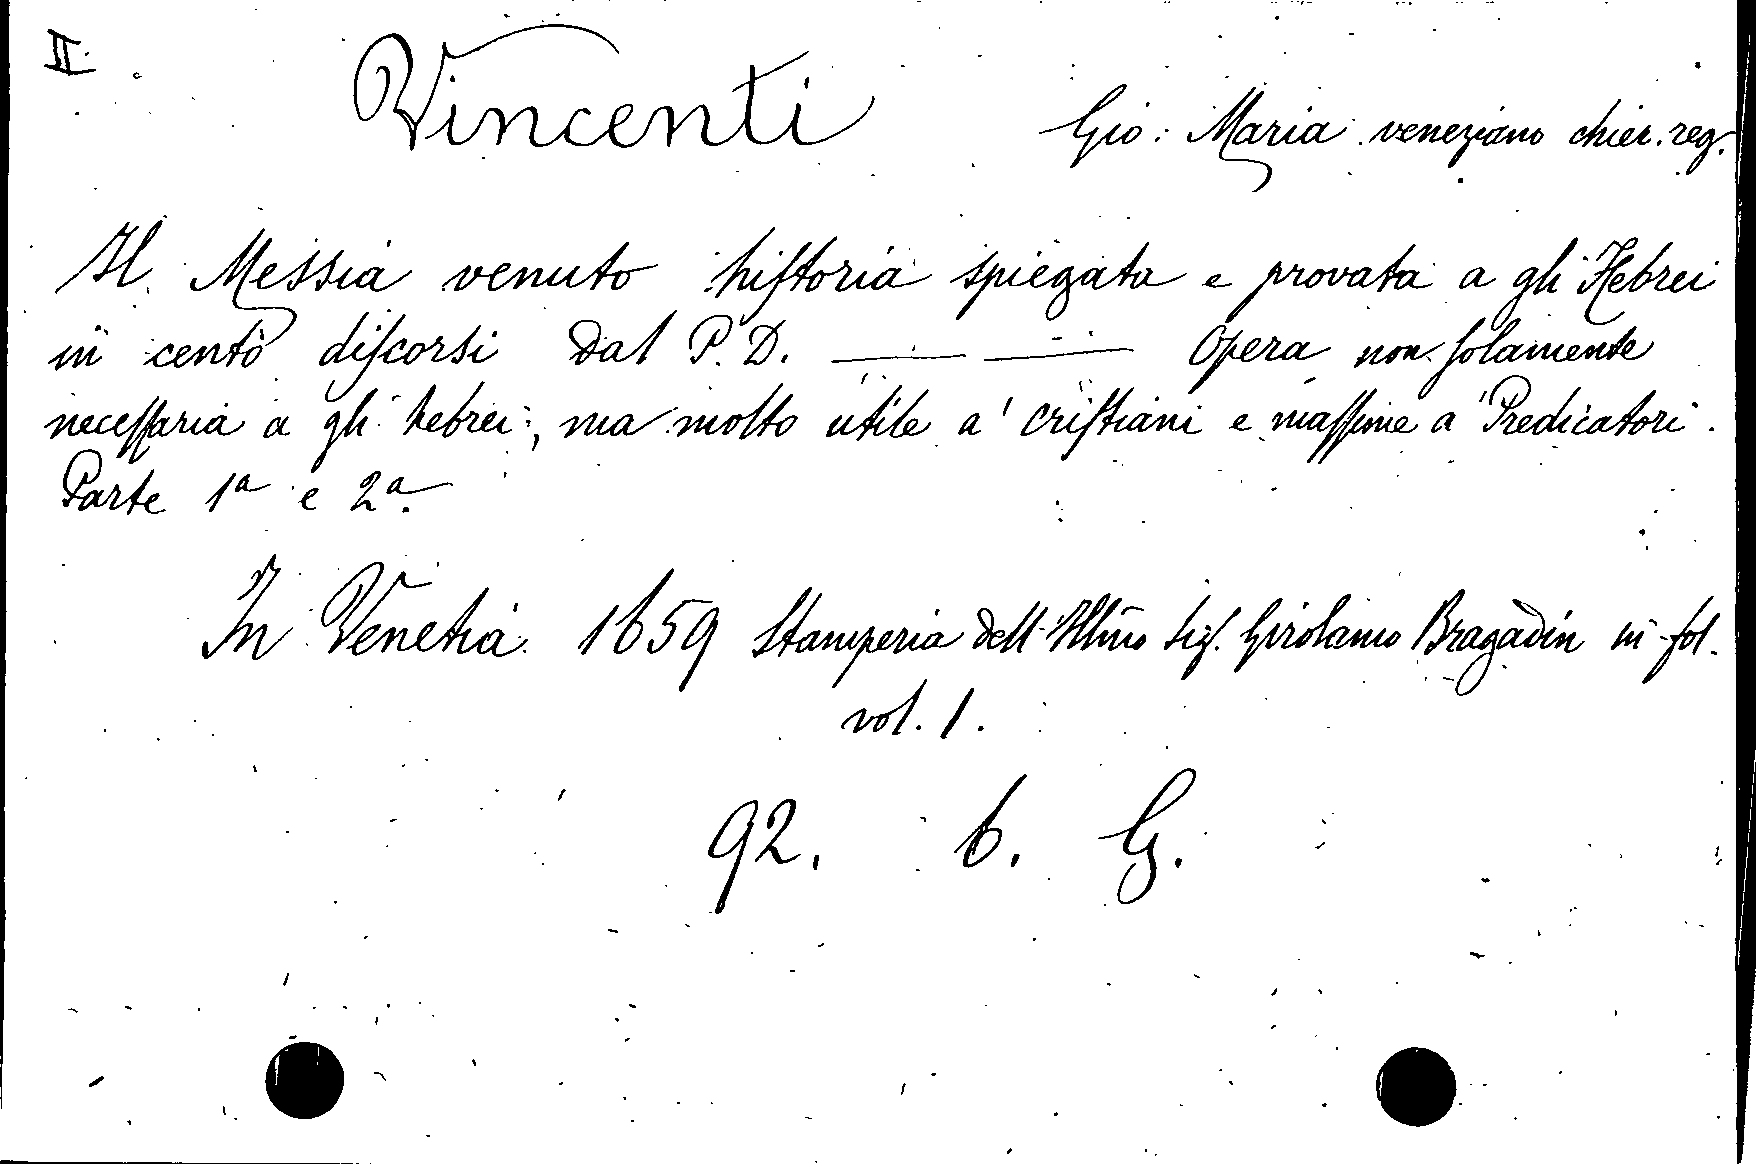 II.
Vincenti Gio: Maria veneziano chier. reg.
Il Messia venuto hiſtoria spiegata e provata a gli Hebrei
in cento diſcorsi dal P. D. ——— ——— Opera non ſolamente
neceſſaria a gli hebrei, ma molto utile a' criſtiani e maſſime a' Predicatori.
Parte 1ª e 2ª.
In Venetia 1659 Stamperia dell' Illmo Sig. Girolamo Bragadin in fol.
vol. 1.
92. 6. G.